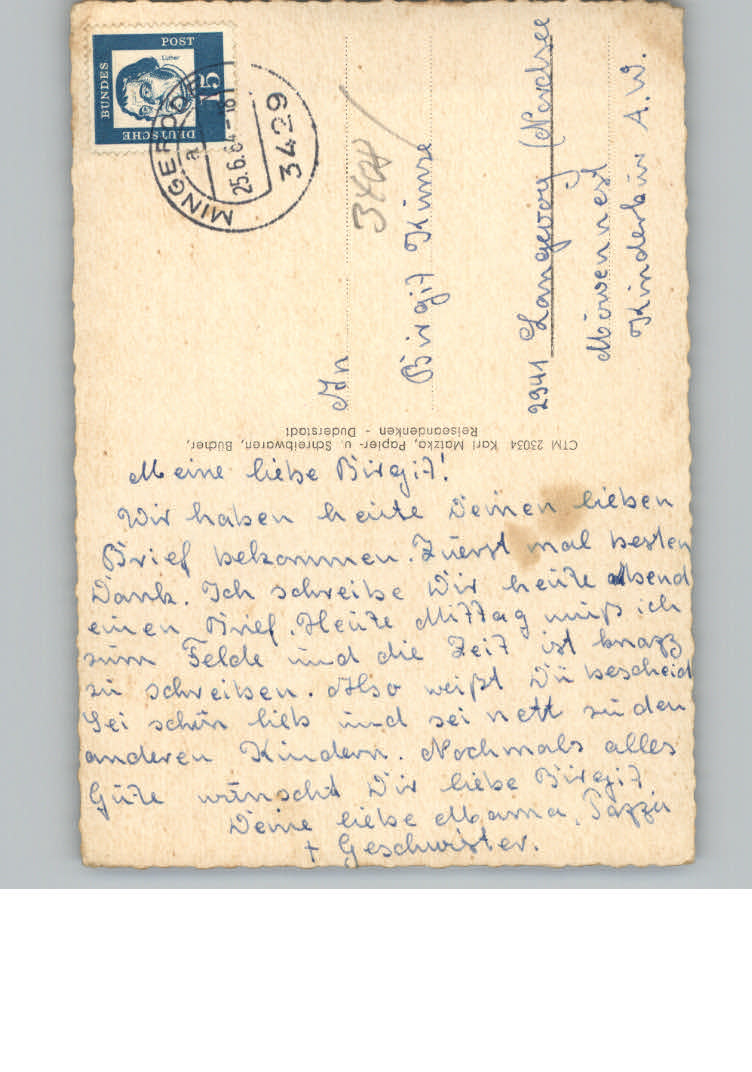 Meine liebe Birgit!
Wir haben heute Deinen lieben
Brief bekommen. Zuerst mal besten
Dank. Ich schreibe Dir heute Abend
einen Brief. Heute Mittag muß ich
zum Felde und die Zeit ist knapp
zu schreiben. Also weißt Du bescheid
Sei schön lieb und sei nett zu den
anderen Kindern. Nochmals alles
Gute wünscht Dir liebe Birgit
Deine liebe Mama, Pappi
+ Geschwister.
An
Birgit Kunze
2941 Langeoog (Nordsee
Möwennest
Kinderkur A.W.
CTM 23034 Karl Matzka, Papier- u. Schreibwaren, Bücher,
Reiseandenken - Duderstadt
DEUTSCHE BUNDES POST
Luther
15
MINGERODE
a
25.6.64-18
3429